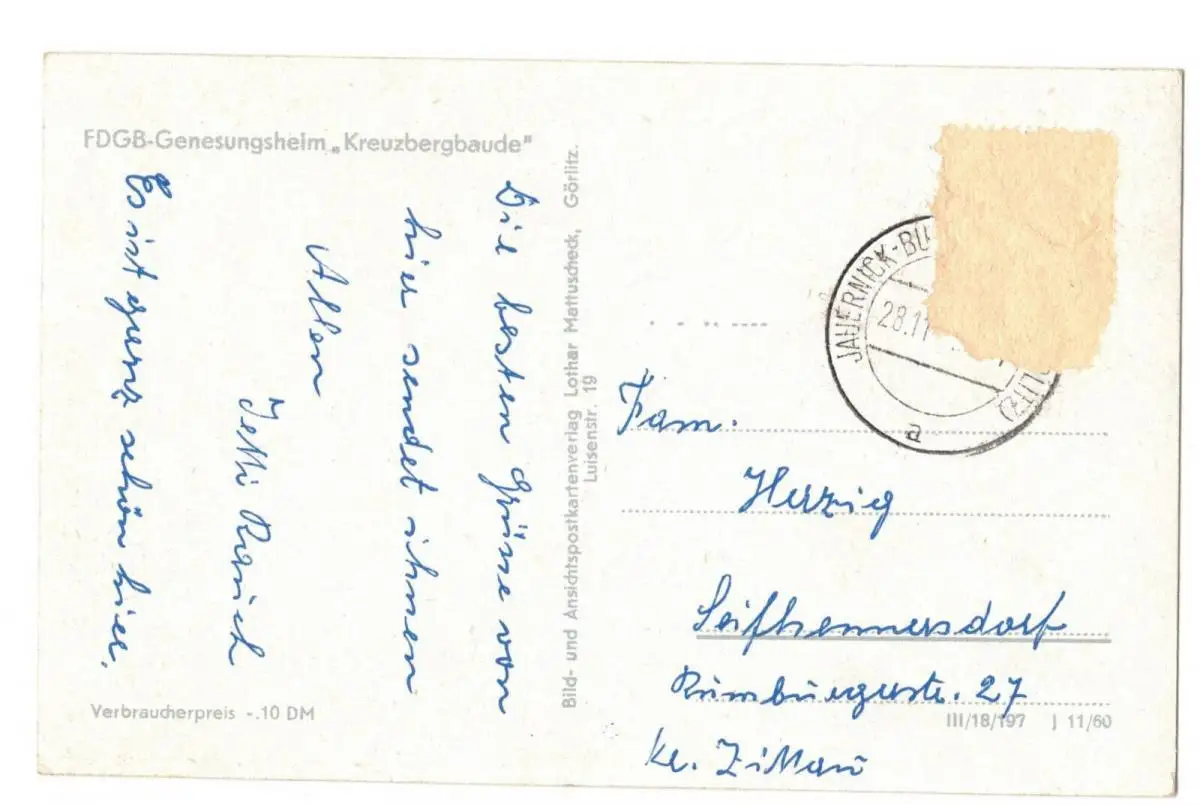 FDGB-Genesungsheim „Kreuzbergbaude"
Die besten Grüsse von
hier sendet ihnen
Allen
Es ist ganz schön hier.
Verbraucherpreis -.10 DM
Bild- und Ansichtspostkartenverlag Lothar Mattuscheck, Görlitz.
Luisenstr. 19
JAUERNICK-BU
28.11
LITZ)
a
Fam.
Herzig
Seifhennersdorf
Rumburgerstr. 27
kr. Zittau
III/18/197 J 11/60